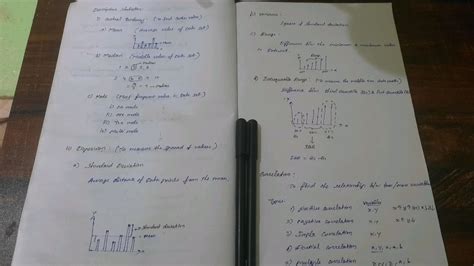 Descriptive Statistics:
1) Central Tendency:
a) Mean: (Average value of Data set)
b) Median: (Middle value of Data set)
= 4 → Median
c) Mode: (Most frequent value in Data set)
i) No mode
ii) One mode
iii) Two mode
iv) Multi mode
ii) Dispersion: (To measure the spread of values)
a) Standard Deviation
Average distance of Data points from the mean.
Standard deviation
Mean
b) Variance:
Square of Standard deviation
c) Range:
Difference b/w the maximum & minimum value
in Dataset
d) Interquartile Range:
Difference b/w third quartile (Q3) & first quartile (Q1)
IQR
IQR = Q3 - Q1
Correlation:
To find the relationship b/w two/more variables
Types:
Variables
1) Positive correlation x.y
2) Negative correlation x.y
3) Simple correlation x.y
4) Partial correlation
5) Multiple correlation